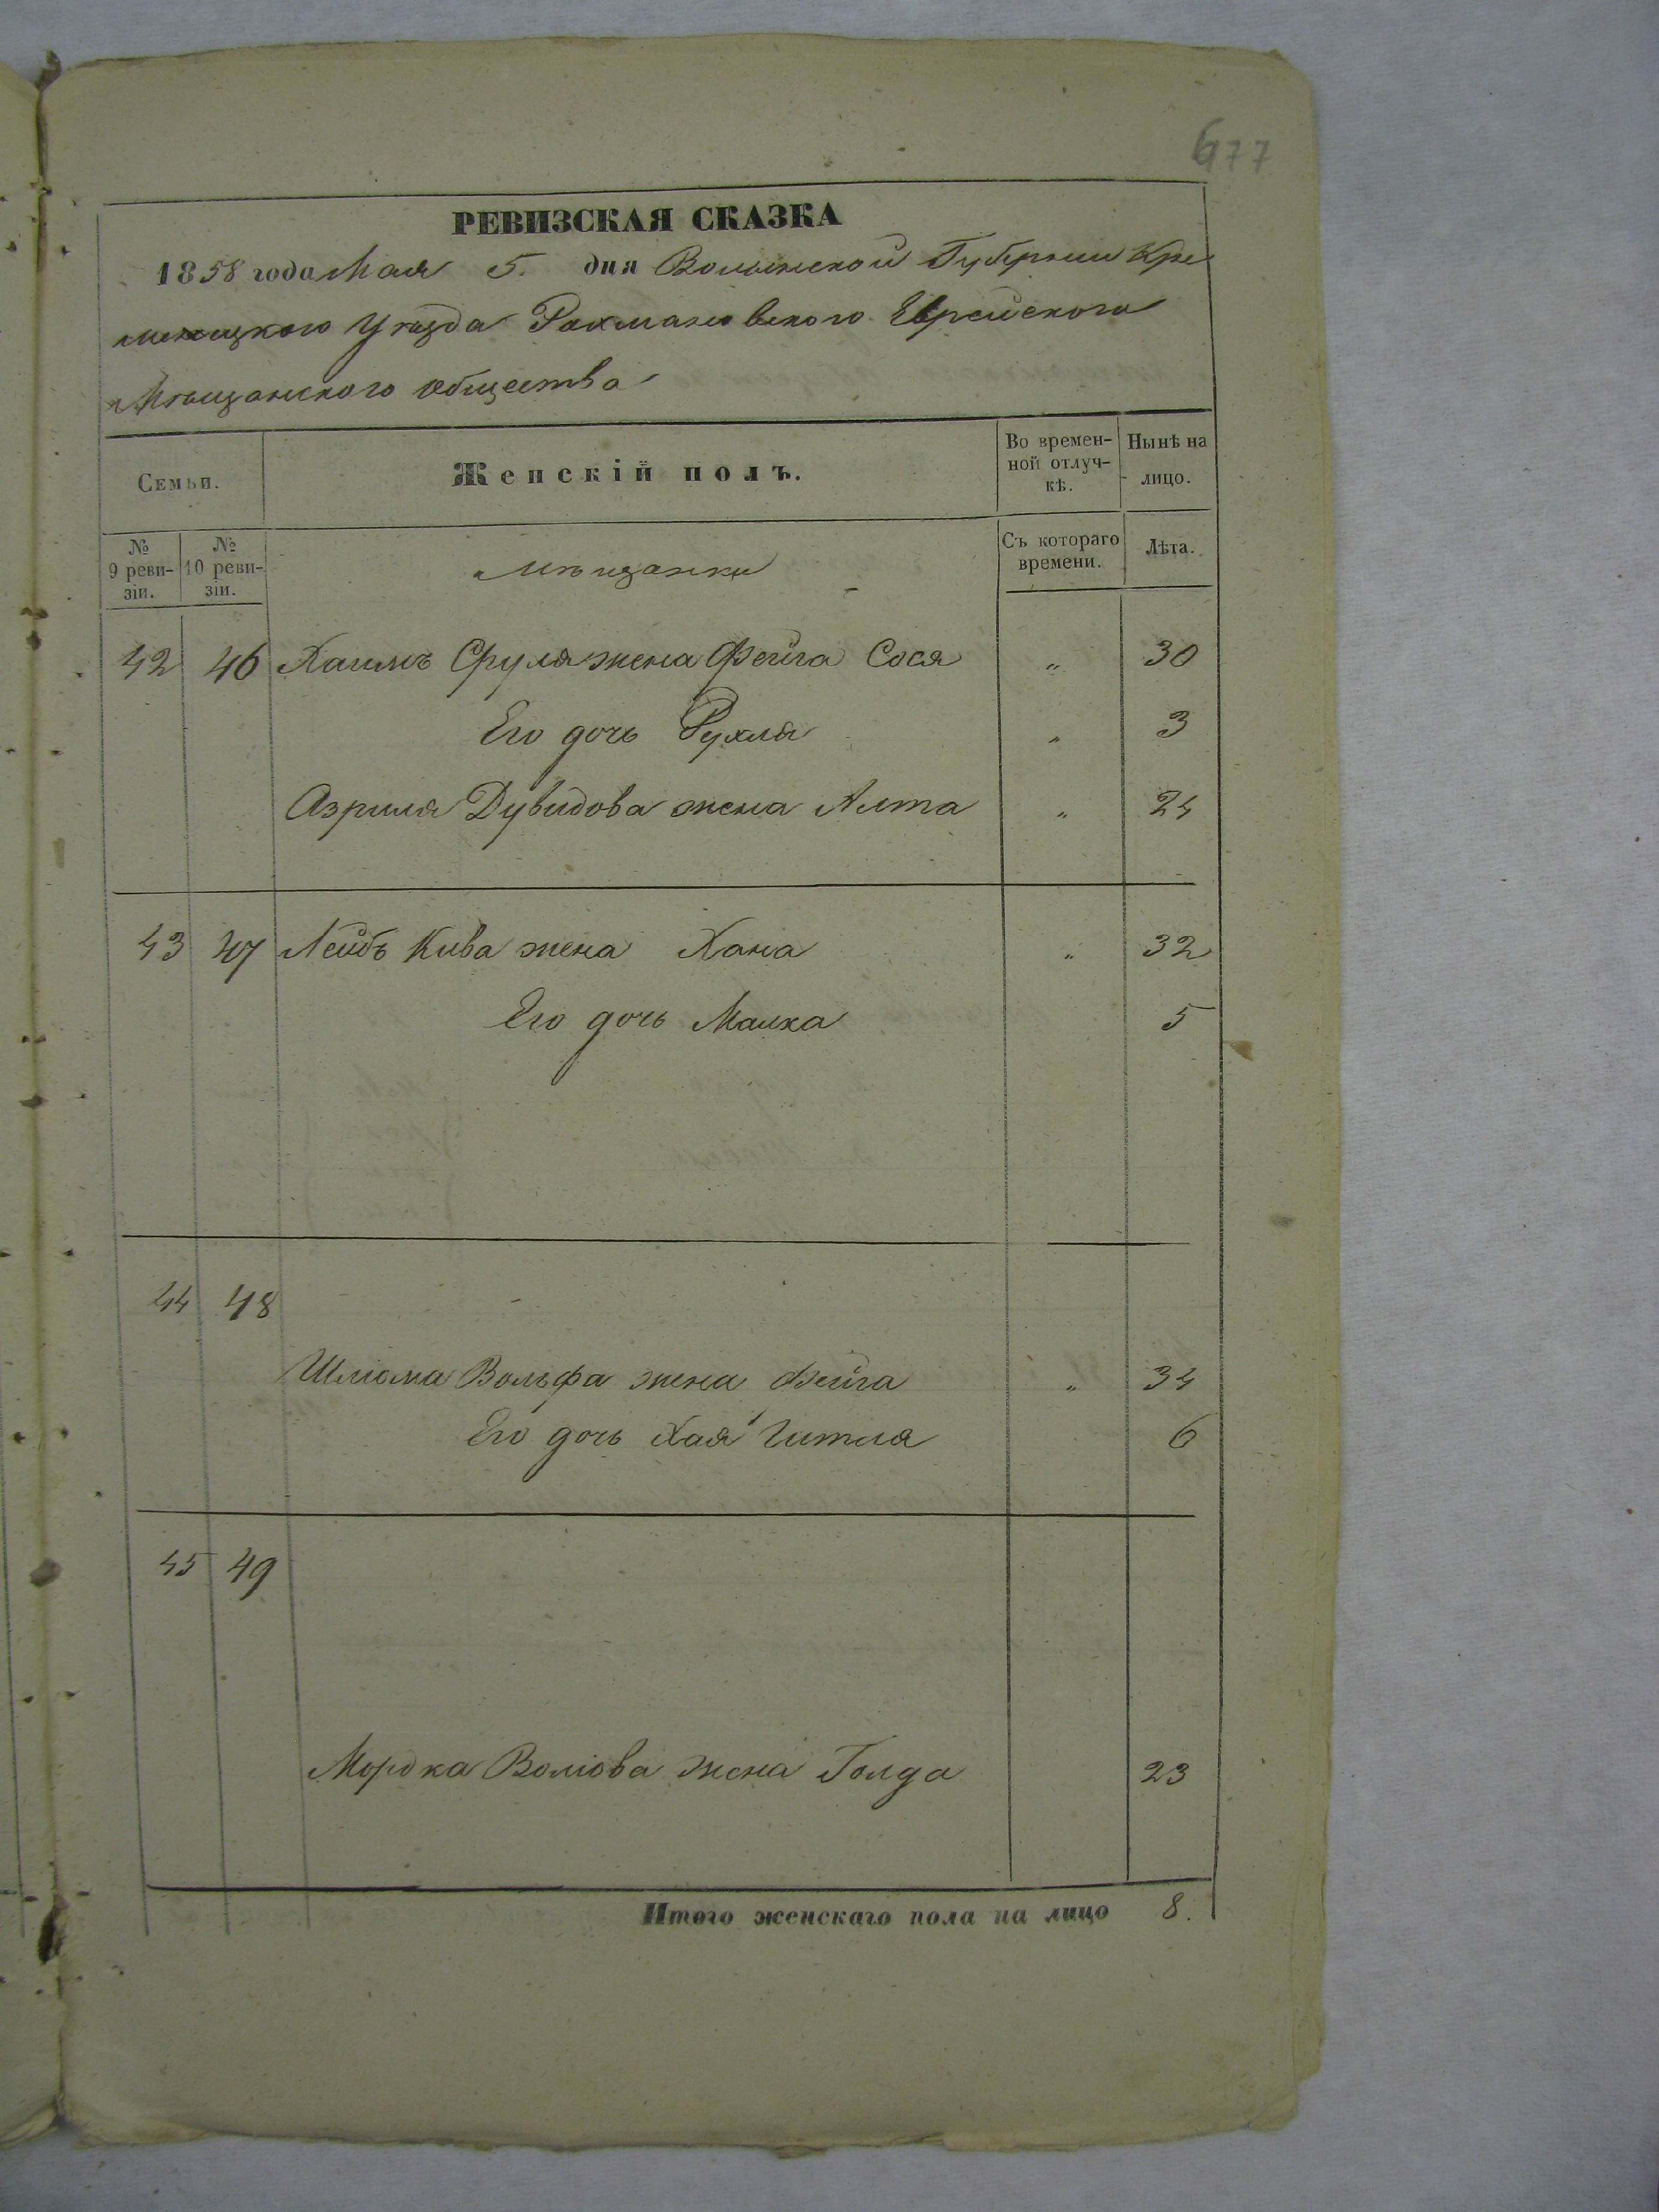 677
РЕВИЗСКАЯ СКАЗКА
1858 года Мая 5. дня Волынской Губерніи Кре
менецкого Уѣзда Рахмановского Еврейского
Мѣщанского общества
Семьи. Женскій полъ. Во времен-ной отлуч-кѣ. Нынѣ на лицо.
№ 9 реви-зіи. № 10 реви-зіи. Мѣщанки Съ котораго времени. Лѣта.
42 46 Хаимъ Сруля жена Фейга Сося " 30
Его дочь Рухля " 3
Азриля Дувидова жена Алта " 24
43 47 Лейбъ Кива жена Хана " 32
Его дочь Малка 5
44 48
Шлиома Вольфа жена Фейга " 34
Его дочь Хая Гитля 6
45 49
Мордка Волiова жена Голда 23
Итого женскаго пола на лицо 8.